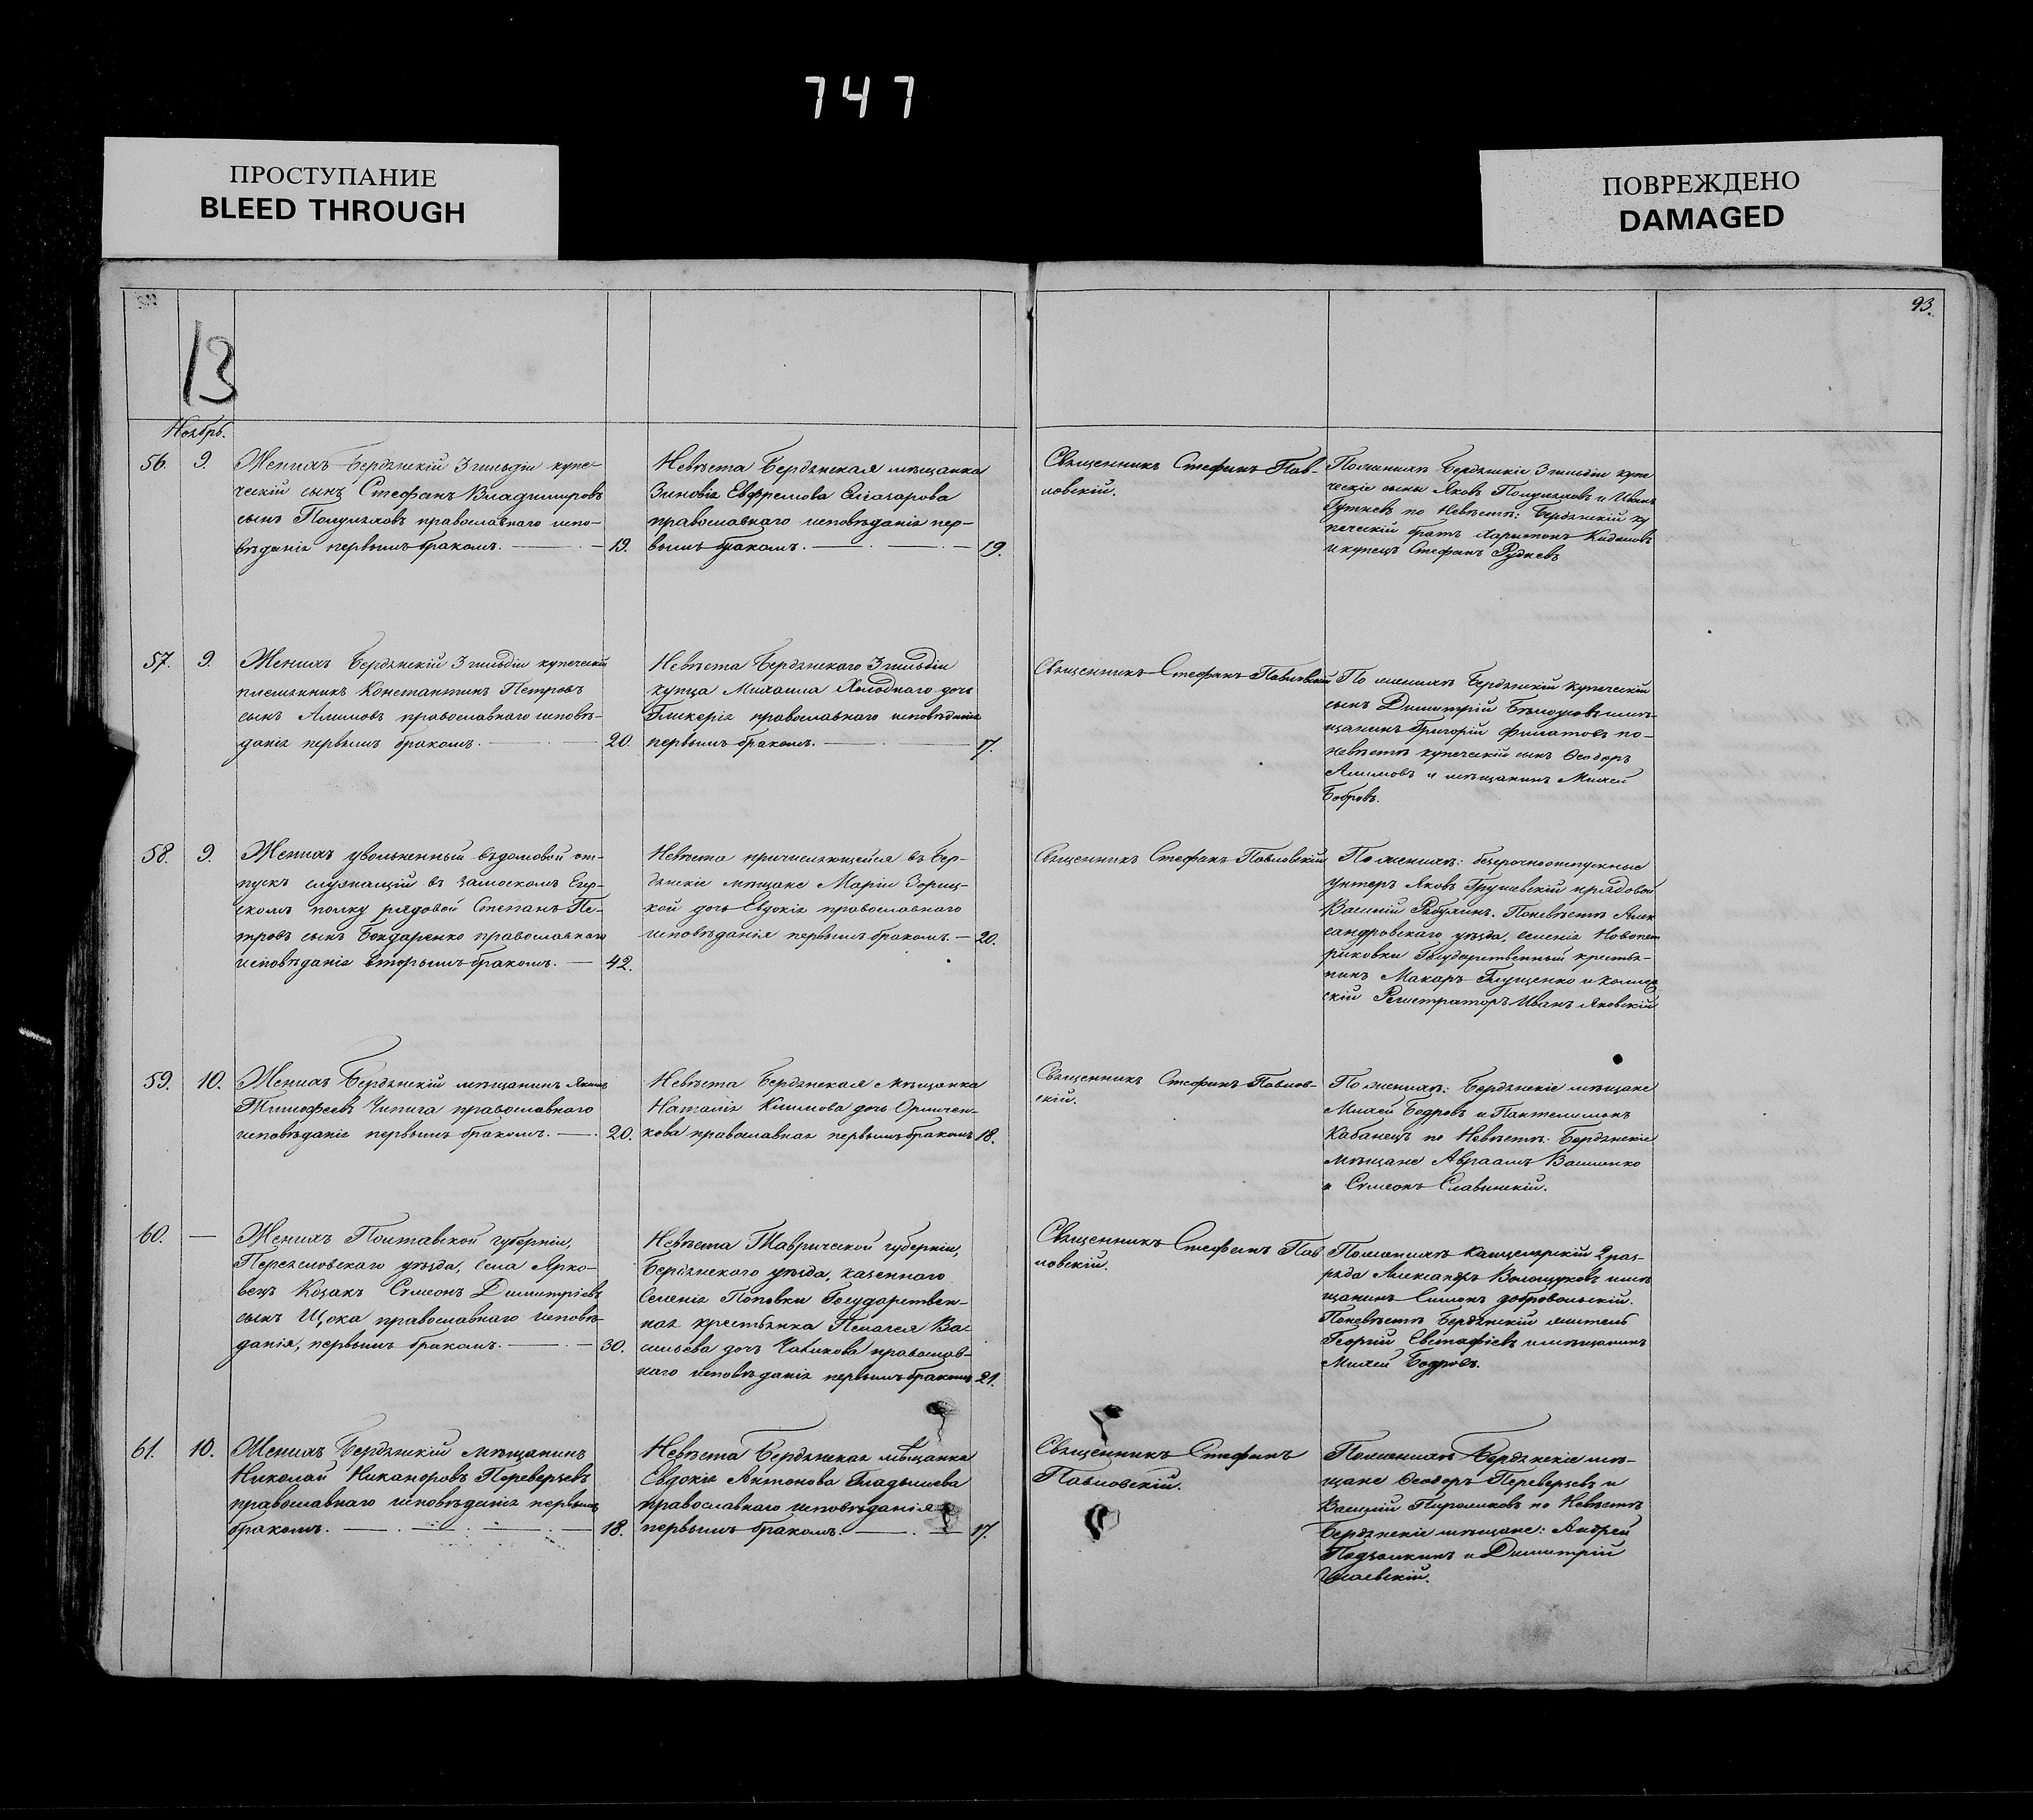 747
ПРОСТУПАНИЕ
BLEED THROUGH
ПОВРЕЖДЕНО
DAMAGED
93.
13
Ноябрь.
56. 9. Женихъ Бердянскій 3 гильдіи купе-
ческій сынъ Стефанъ Владимировъ
сынъ Полуэктовъ православнаго испо-
вѣданія первымъ бракомъ. 19.
Невѣста Бердянская мѣщанка
Зиновія Евфремова
православнаго исповѣданія пер-
вымъ бракомъ. 19.
Священникъ Стефанъ Пав-
ловскій.
По женихѣ Бердянскіе 3 гильдіи купе
ческіе сыны Яковъ Полуэктовъ и Иванъ
по Невѣстѣ: Бердянскій ку
печескій братъ Харитонъ
и купецъ Стефанъ Рудневъ
57. 9. Женихъ Бердянскій 3 гильдіи купеческій
племянникъ Константинъ Петровъ
сынъ Алимовъ православнаго исповѣ-
данія первымъ бракомъ. 20.
Невѣста Бердянскаго 3 гильдіи
купца Михаила Холоднаго дочь
Гликерія православнаго исповѣданія
первымъ бракомъ. 17.
Священникъ Стефанъ Павловскій
По женихѣ Бердянскій купеческій
сынъ Димитрій и мѣ-
щанинъ Григорій Филатовъ по
невѣстѣ купеческій сынъ Ѳеодоръ
Алимовъ и мѣщанинъ Михей
Бобровъ.
58. 9. Женихъ уволенный въ домовой от-
пускъ служащій въ Замоскомъ Егер-
скомъ полку рядовой Степанъ Пе-
тровъ сынъ Бондаренко православнаго
исповѣданія вторымъ бракомъ. 42.
Невѣста причисляющейся въ Бер-
дянскіе мѣщане Маріи Зориц-
кой дочь Евдокія православнаго
исповѣданія первымъ бракомъ. 20.
Священникъ Стефанъ Павловскій
По женихѣ: безсрочноотпускные
унтеръ Яковъ Грушевскій и рядовой
Василій Рябухинъ. По невѣстѣ Алек
сандровскаго уѣзда, селенія Новопет
риковки Государственный крестья-
нинъ Макаръ Глущенко и коллеж
скій Регистраторъ Иванъ Яковскій
59. 10. Женихъ Бердянскій мѣщанинъ Якимъ
Тимофеевъ Чипига православнаго
исповѣданія первымъ бракомъ. 20.
Невѣста Бердянская мѣщанка
Наталія Климова дочь Ормичен-
кова православная первымъ бракомъ 18.
Священникъ Стефанъ Павлов-
скій.
По женихѣ: Бердянскіе мѣщане
Михей Бодровъ и Пантелимонъ
Кабанецъ по Невѣстѣ: Бердянскіе
мѣщане Авраамъ Василенко
и Сѵмеонъ Славинскій.
60. — Женихъ Полтавской губерніи,
Переяловскаго уѣзда, села Ярко-
вецъ Козакъ Сѵмеонъ Димитріевъ
сынъ Щока православнаго исповѣ-
данія, первымъ бракомъ. 30.
Невѣста Таврической губерніи,
Бердянскаго уѣзда, казеннаго
селенія Поповки Государствен-
ная крестьянка Пелагея Ва-
сильева дочь православ-
наго исповѣданія первымъ бракомъ 21.
Священникъ Стефанъ Пав
ловскій.
По женихѣ канцелярскій 2 раз-
ряда Александръ Волощуковъ и мѣ
щанинъ Симонъ Добровольскій.
По невѣстѣ Бердянскій житель
Георгій Евстафіевъ и мѣщанинъ
Михей Бодровъ.
61. 10. Женихъ Бердянскій мѣщанинъ
Николай Никаноровъ Переверзевъ
православнаго исповѣданія первымъ
бракомъ. 18.
Невѣста Бердянская мѣщанка
Евдокія Антонова Гладышева
православнаго исповѣданія
первымъ бракомъ. 17.
Священникъ Стефанъ
Павловскій.
По женихѣ Бердянскіе мѣ-
щане Ѳеодоръ Переверзевъ и
Василій Пирожковъ по Невѣстѣ
Бердянскіе мѣщане: Андрей
и Димитрій